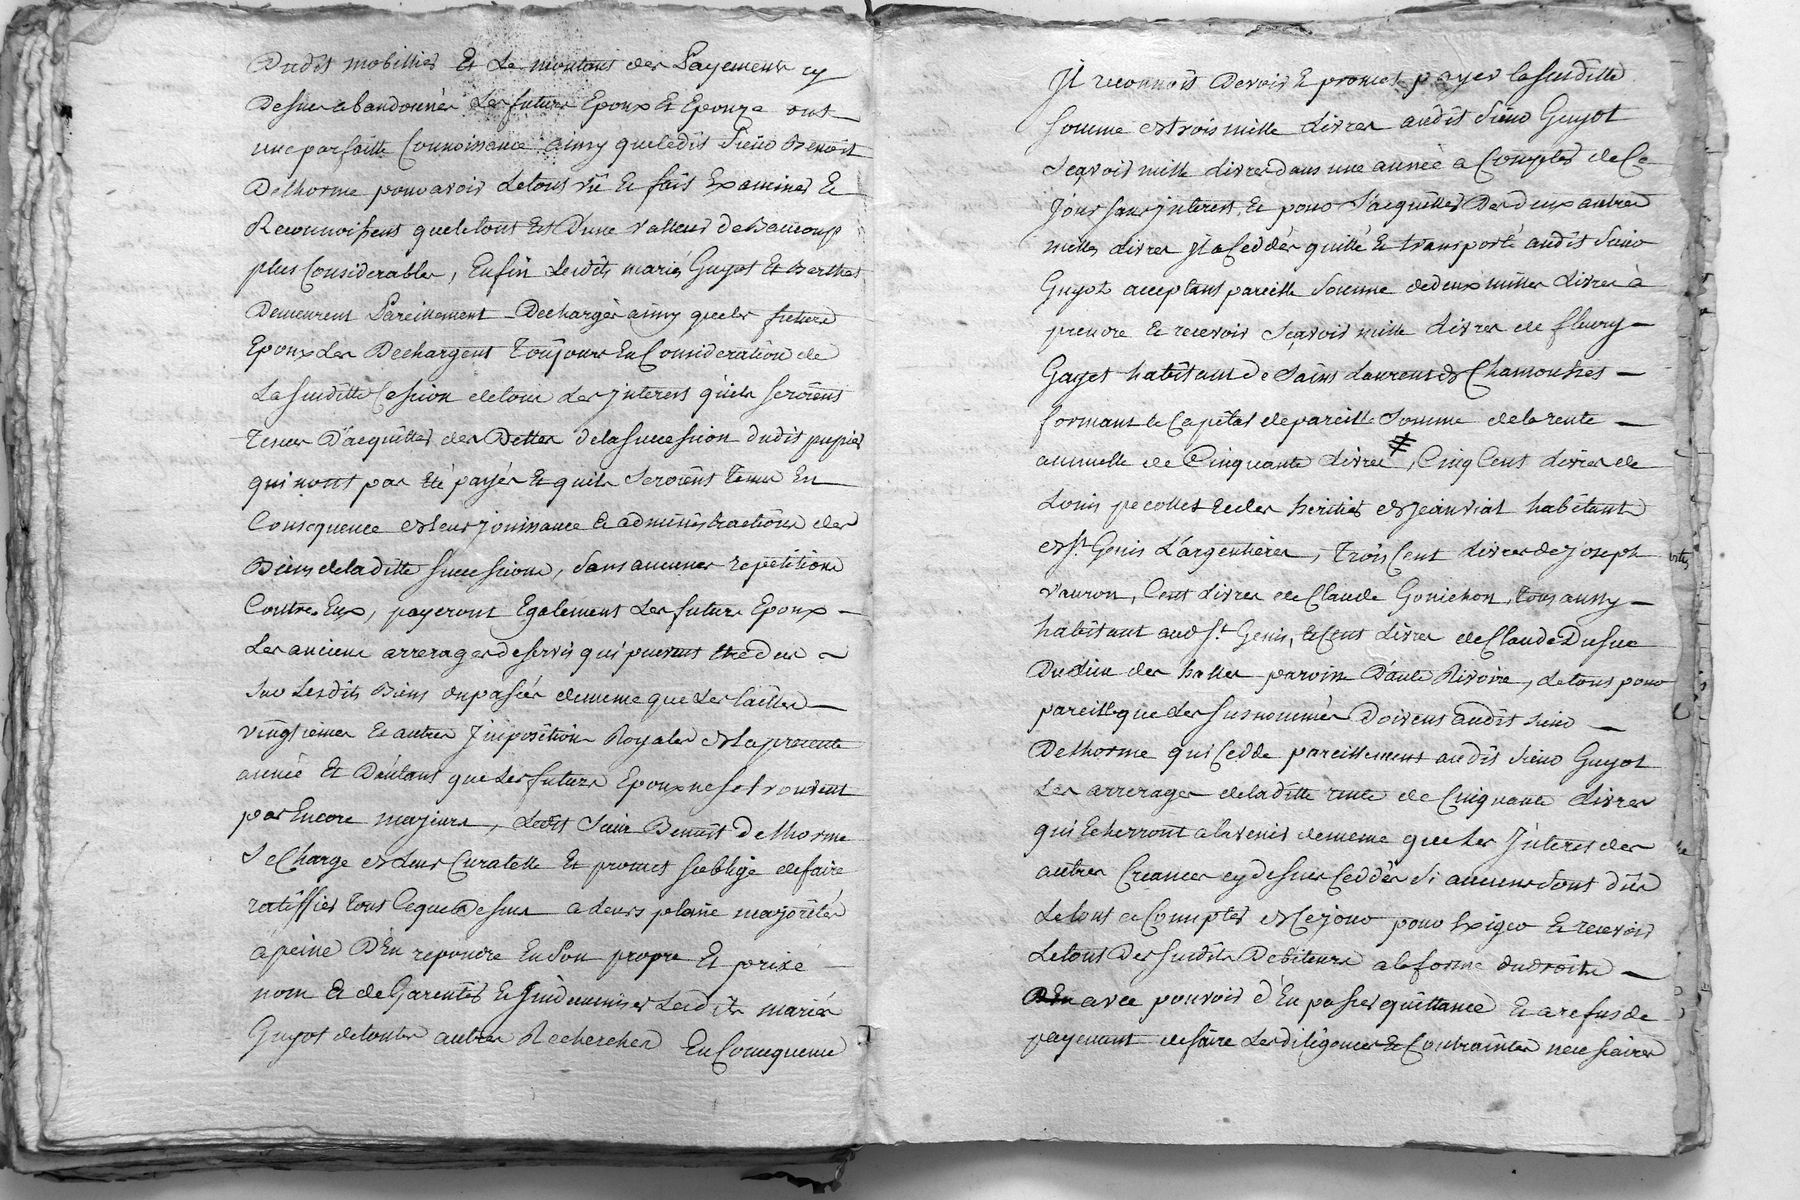 Dudit mobillier Et Le montant des Payements cy
Desus abandonnés Les futurs Epoux Et Epouze ont
une parfaitte Connoissance ainsy que ledit Sieur Benoit
Delhorme pour avoir Le tout vû Et fait Examiner Et
Reconnoissent que le tout Est D'une valleur de Beaucoup
plus Considerable, Enfin Lesdits mariés Guyot Et Berthet
Demeurent Pareillement Dechargés ainsy que les futurs
Epoux Les Dechargent Toujours En Consideration de
La susditte Cession de tous Les jnterets qu'ils seroient
Tenus D'acquitter des Dettes de la succession dudit pupier
qui nont pas Eté payés Et quils seroient Tenus En
Consequence de Leur jouissance Et administration des
Biens de laditte succession, sans aucunes repetitions
Contre Eux, payeront Egalement Les futurs Epoux
Les anciens arrerages de servis qui peuvent Etre dus
sur Lesdits Biens du passés de meme que Les tailles
vingtiemes Et autres Jmpositions Royales de la presente
année Et D'autant que Les futurs Epoux ne se trouvent
pas Encore majeurs, Ledit Sieur Benoit Delhorme
se Charge de Leur Curatelle Et promet s'oblige de faire
ratiffier tout ce que Desus a Leurs plaine majorités
a peine D'En repondre En Son propre Et privé
nom Et de Garentir Et Jndemniser Lesdits mariés
Guyot de toutes autres Recherches En Consequence
Jl reconnoit Devoir Et promet payer la susditte
somme de trois mille Livres audit Sieur Guyot
Sçavoir mille Livres dans une année a Compter de Ce
jour sans jnterest, Et pour S'acquitter Des deux autres
milles Livres jl a Ceddés quitté Et transporté audit Sieur
Guyot acceptant pareille Somme de deux milles Livres à
prendre Et recevoir Sçavoir mille Livres de fleury
Gayet habitant de Saint Laurent de Chamousset
formant le Capital de pareille Somme de la rente
annuelle de Cinquante Livres ⧧, Cinq Cent Livres de
Louis pecollet Et des heritiers de jean viat habitants
de St. Genis L'argentieres, Trois Cent Livres de joseph
vauron, Cent Livres de Claude Gonichon, tous aussy
habitant aud St. Genis, Et Cent Livres de Claude Dusuc
Du Lieu des halles paroisse D'aute Rivoire, Le tout pour
pareille que Les susnommés Doivent audit Sieur
Delhorme qui Cedde pareillement audit Sieur Guyot
Les arrerages de laditte rente de Cinquante Livres
qui Echerront a Lavenir de meme que Les Jnterets des
autres Creances cy desus Ceddés Si aucuns Sont dûs
Le tout a Compter de Ce jour pour Exiger Et recevoir
Le tout Des susdits Debiteurs a la forme du droits
avec pouvoir d'En passer quittance Et a refus de
payement de faire Les diligences Et Contraintes necessaires